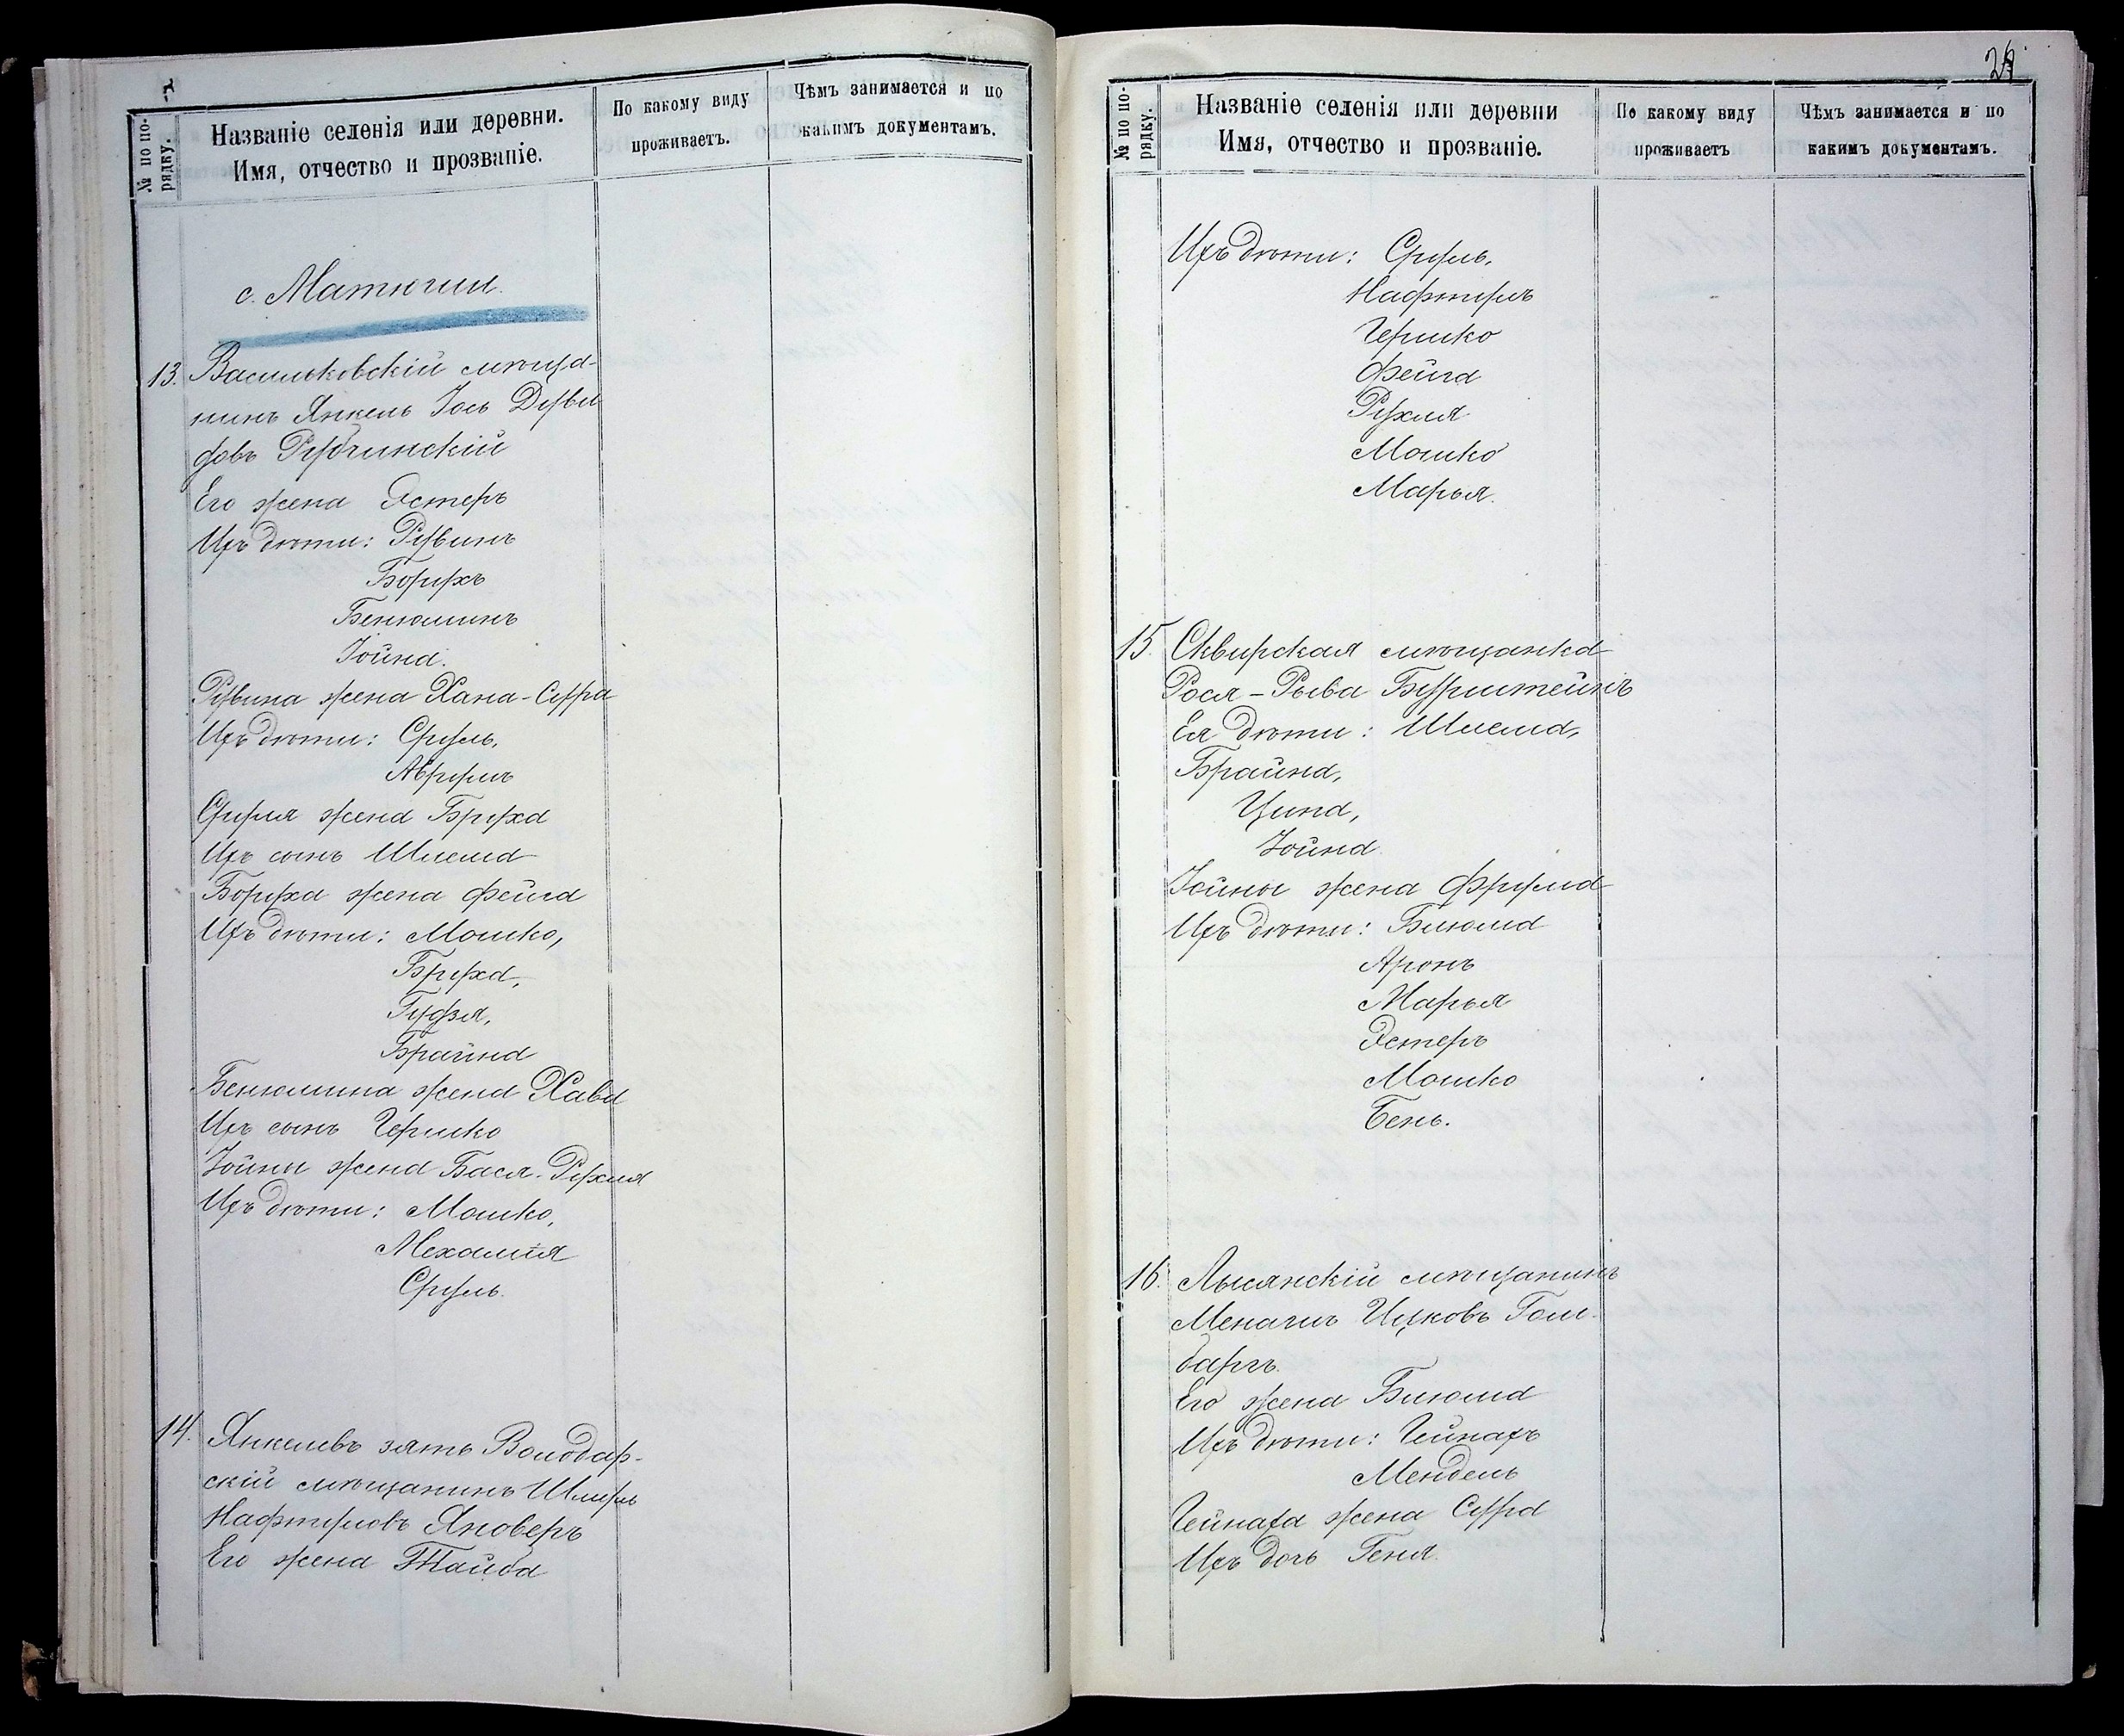 № по по-
рядку.
Названіе селенія или деревни.
Имя, отчество и прозваніе.
По какому виду
проживаетъ.
Чѣмъ занимается и по
какимъ документамъ.
с. Матюши.
13. Васильковскій мѣща-
нинъ Янкель Іось Дуви
довъ Рубчинскій
Его жена Эстеръ
Ихъ дѣти: Рувинъ
Борухъ
Бенюминъ
Іойна.
Рувина жена Хана-Сура
Ихъ дѣти: Сруль,
Аврумъ
Сруля жена Бруха
Ихъ сынъ Шлема
Боруха жена Фейга
Ихъ дѣти: Мошко,
Бруха,
Гудзя,
Брайна
Бенюмина жена Хава
Ихъ сынъ Гершко
Іойны жена Бася-Рухля
Ихъ дѣти: Мошко,
Мехамія
Сруль.
14. Янкелевъ зять Володар-
скій мѣщанинъ Шмуль
Нафтуловъ Яноверъ
Его жена Тайба
24
№ по по-
рядку.
Названіе селенія или деревни
Имя, отчество и прозваніе.
По какому виду
проживаетъ
Чѣмъ занимается и по
какимъ документамъ.
Ихъ дѣти: Сруль,
Нафтулъ
Гершко
Фейга
Рухля
Мошко
Марья.
15. Сквирская мѣщанка
Рося-Рыва Бурштейнъ
Ея дѣти: Шлема,
Брайна,
Цина,
Іойна
Іойны жена Фрума
Ихъ дѣти: Блюма
Аронъ
Марья
Эстеръ
Мошко
Бень.
16. Лысянскій мѣщанинъ
Меначиъ Ицковъ Голь-
баргъ.
Его жена Блюма
Ихъ дѣти: Гейнахъ
Мендель
Гейнаха жена Сура
Ихъ дочь Геня.